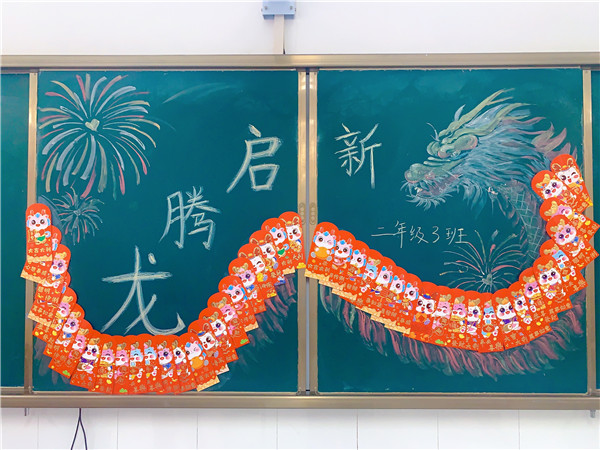 龙腾启新
二年级3班